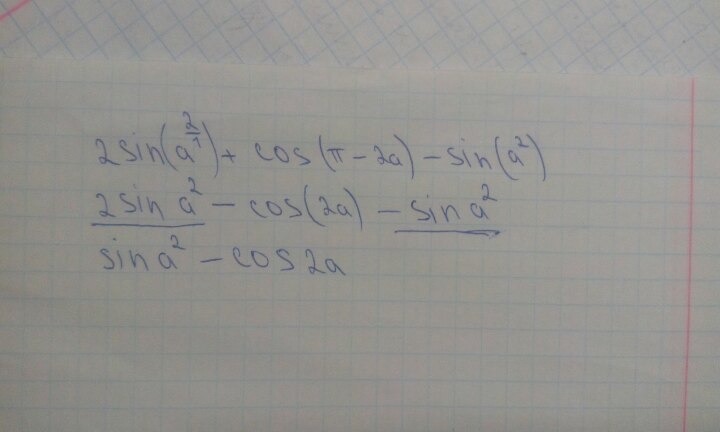 2sin(a^(2/1)) + cos(π - 2a) - sin(a²)
2sin a² - cos(2a) - sin a²
sin a² - cos2a